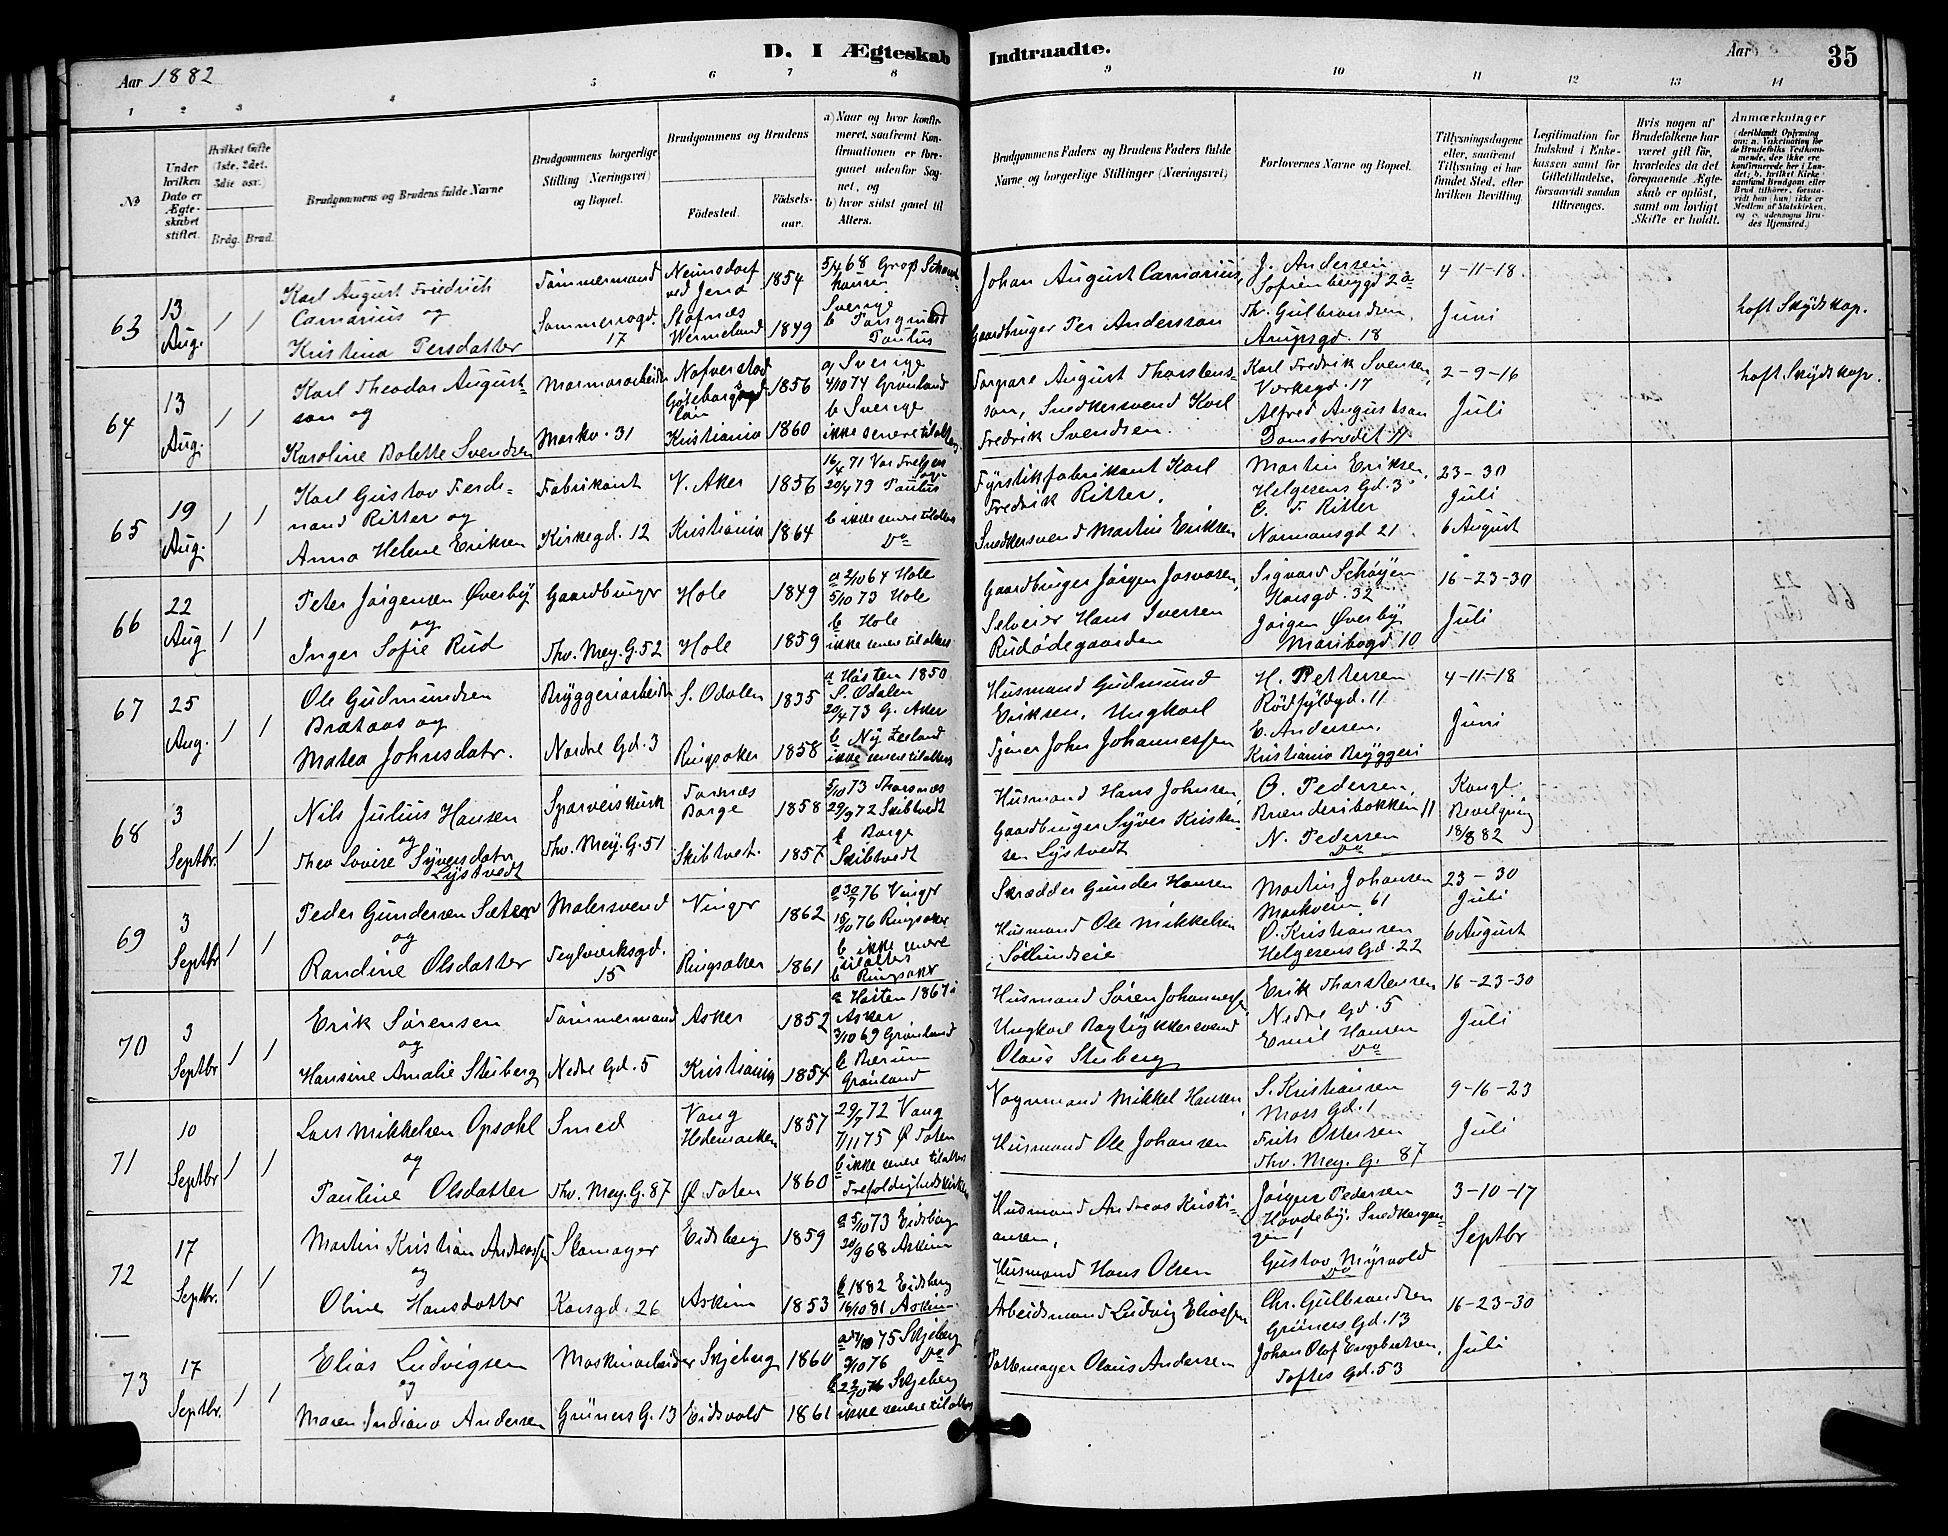 D. I Ægteskab Indtraadte.
Aar 1882
Aar
35
1 2 3 4 5 6 7 8 9 10 11 12 13 14
№
Under hvilken Dato er Ægteskabet stiftet.
Hvilket Gifte (1ste, 2det, 3die osv.)
Brdg. Brud.
Brudgommens og Brudens fulde Navne
Brudgommens borgerlige Stilling (Næringsvei) og Bopæl.
Brudgommens og Brudens
Fødested.
Fødselsaar.
a) Naar og hvor konfirmeret, saafremt Konfirmationen er foregaaet udenfor Sognet, og
b) hvor sidst gaaet til Alters.
Brudgommens Faders og Brudens Faders fulde Navne og borgerlige Stillinger (Næringsvei)
Forlovernes Navne og Bopæl.
Tillysningsdagene eller, saafremt Tillysning ei har fundet Sted, efter hvilken Bevilling.
Legitimation for Indskud i Enkekassen samt for Giftetilladelse, forsaavidt saadan tiltrænges.
Hvis nogen af Brudefolkene har været gift før, hvorledes da det foregaaende Ægteskab er opløst, samt om lovligt Skifte er holdt.
Anmærkninger
63
13 Aug.
1 1
Karl August Friedrich
Carnarius og
Kristina Persdatter
Tømmermand
Sommerrogd.
17
Neunsdorf
ved Jena
1854
Stafnæs
Wermeland
1849
5/4 68
Sverige
b
Paulus
Johan August Carnarius,
Gaardbruger Per Andersson
J. Andersen
Sofienberggd 2a
Th. Gulbrandsen,
Arupsgd. 18
4-11-18.
Juni
haft Skydskop.
64
13 Aug.
1 1
Karl Theodor August-
son og
Karoline Bolette Svendsen
Marmorarbeider
Markv. 31
Nafverstad
Göteborgs
län
1856
Kristiania
1860
a Sverige
4/10 74 Grønland
b Sverige
ikke senere til alters
Torpare August Thorstens-
son, Snedkersvend Karl
Fredrik Svendsen.
Karl Fredrik Svensen,
Verksgd. 17
Alfred Augustson
Damstrædet 11
2-9-16
Juli
haft Skydskop.
65
19 Aug.
1 1
Karl Gustav Ferdi-
nand Ritter og
Anna Helene Eriksen
Fabrikant
Kirkegd. 12
V. Aker
1856
Kristiania
1864
16/4 71 Vor Frelsers
20/4 79 Paulus
b ikke senere til alters
Do
Fyrstikfabrikant Karl
Fredrik Ritter,
Snedkersvend Martin Eriksen
Martin Eriksen,
Helgesens Gd. 3
C. F. Ritter
Normansgd 21
23-30
Juli
6 August
66
22 Aug
1 1
Peter Jørgensen Øverby
og
Inger Sofie Rud
Gaardbruger
Thv. Mey. G. 52
Hole
1849
Hole
1859
a 2/10 64 Hole
5/10 73 Hole
b Hole
ikke senere til alters
Gaardbruger Jørgen
Selveier Hans Iversen
Rudødegaarden
Sigvard Schøyen
Korsgd. 32
Jørgen Øverby
Maribogd 10
16-23-30
Juli
67
25 Aug.
1 1
Ole Gudmundsen
Brataas og
Matea Johnsdatr.
Bryggeriarbeider
Nordre Gd. 3
S. Odalen
1835
Ringsaker
1858
a Høsten 1850
S. Odalen
20/4 73 G. Aker
b Ny Zeeland
ikke senere til alters
Husmand Gudmund
Eriksen, Ungkarl
Tjener John Johannessen
H. Pettersen
Rødfyldgd. 11
E. Andersen,
Kristiania Bryggeri
4-11-18
Juni
68
3 Septbr.
1 1
Nils Julius Hansen
og
Thea Lovise Syversdatr
Lystvedt
Sporveiskusk
Thv. Mey. G. 51
Borge
1858
Skibtvet.
1857
5/10 73
29/9 72 Skibtvedt
b Borge
Skibtvedt
Husmand Hans Johnsen,
Gaardbruger Syver Kristen-
sen Lystvedt
O. Pedersen,
Brænderibakken 11
N. Pedersen
Do
Kongl
Bevilgning
18/8 82
69
3 Septbr
1 1
Peder Gundersen Sæter
og
Randine Olsdatter
Malersvend
Teglverksgd.
15
Vinger
1862
Ringsaker
1861
a 30/7 76 Vinger
15/10 76 Ringsaker
b ikke senere
til alters
b Ringsaker
Skrædder Gunder Hansen
Husmand Ole Mikkelsen
Martin Johansen
Markveien 61
O. Kristiansen
Helgesens Gd. 22
23-30
Juli
6 August
70
3 Septbr
1 1
Erik Sørensen
og
Hansine Amalie Stuberg
Tømmermand
Nedre Gd. 5
Asker
1852
Kristiania
1854
a Høsten 1867 i
Asker
3/10 69 Grønland
b Bærum
Grønland
Husmand Søren Johannessen
Ungkarl Bogtrykkersvend
Olaus Stuberg
Erik Thorstensen
Nedre Gd. 5
Emil Hansen
Do
16-23-30
Juli
71
10 Septbr
1 1
Lars Mikkelsen Opsahl
og
Pauline Olsdatter
Smed
Thv. Mey. G. 87
Vang
Hedemarken
1857
Ø. Toten
1860
29/7 72 Vang
7/11 75 Ø Toten
b ikke senere til alters
Trefoldighedskirken
Vognmand Mikkel Hansen,
Husmand Ole Johansen
S. Kristiansen
Moss Gd. 1
Frits Ottersen
Thv. Mey. G. 87
9-16-23
Juli
72
17 Septbr.
1 1
Martin Kristian Andreassen
og
Oline Hansdatter
Skomager
Korsgd. 26
Eidsberg
1859
Askim
1853
a 5/10 73 Eidsberg
20/9 68 Askim
b 1882 Eidsberg
16/10 81 Askim
Husmand Andreas Kristi-
ansen,
Husmand Hans Olsen
Jørgen Pedersen
Hovdeby, Snedkergan-
gen
Gustav Myrvold
Do
3-10-17
Septbr
73
17 Septbr.
1 1
Elias Ludvigsen
og
Maren Indiana Andersen
Maskinarbeider
Grüners G. 13
Skjeberg
1860
Eidsvold
1861
75 Skjeberg
76 Do
b Skjeberg
ikke senere til alters
Arbeidsmand Ludvig Eliassen
Pottemager Olaus Andersen
Chr. Gulbrandsen
Grüners Gd. 13
Johan Olaf Engebretsen,
Toftes Gd. 53
16-23-30
Juli